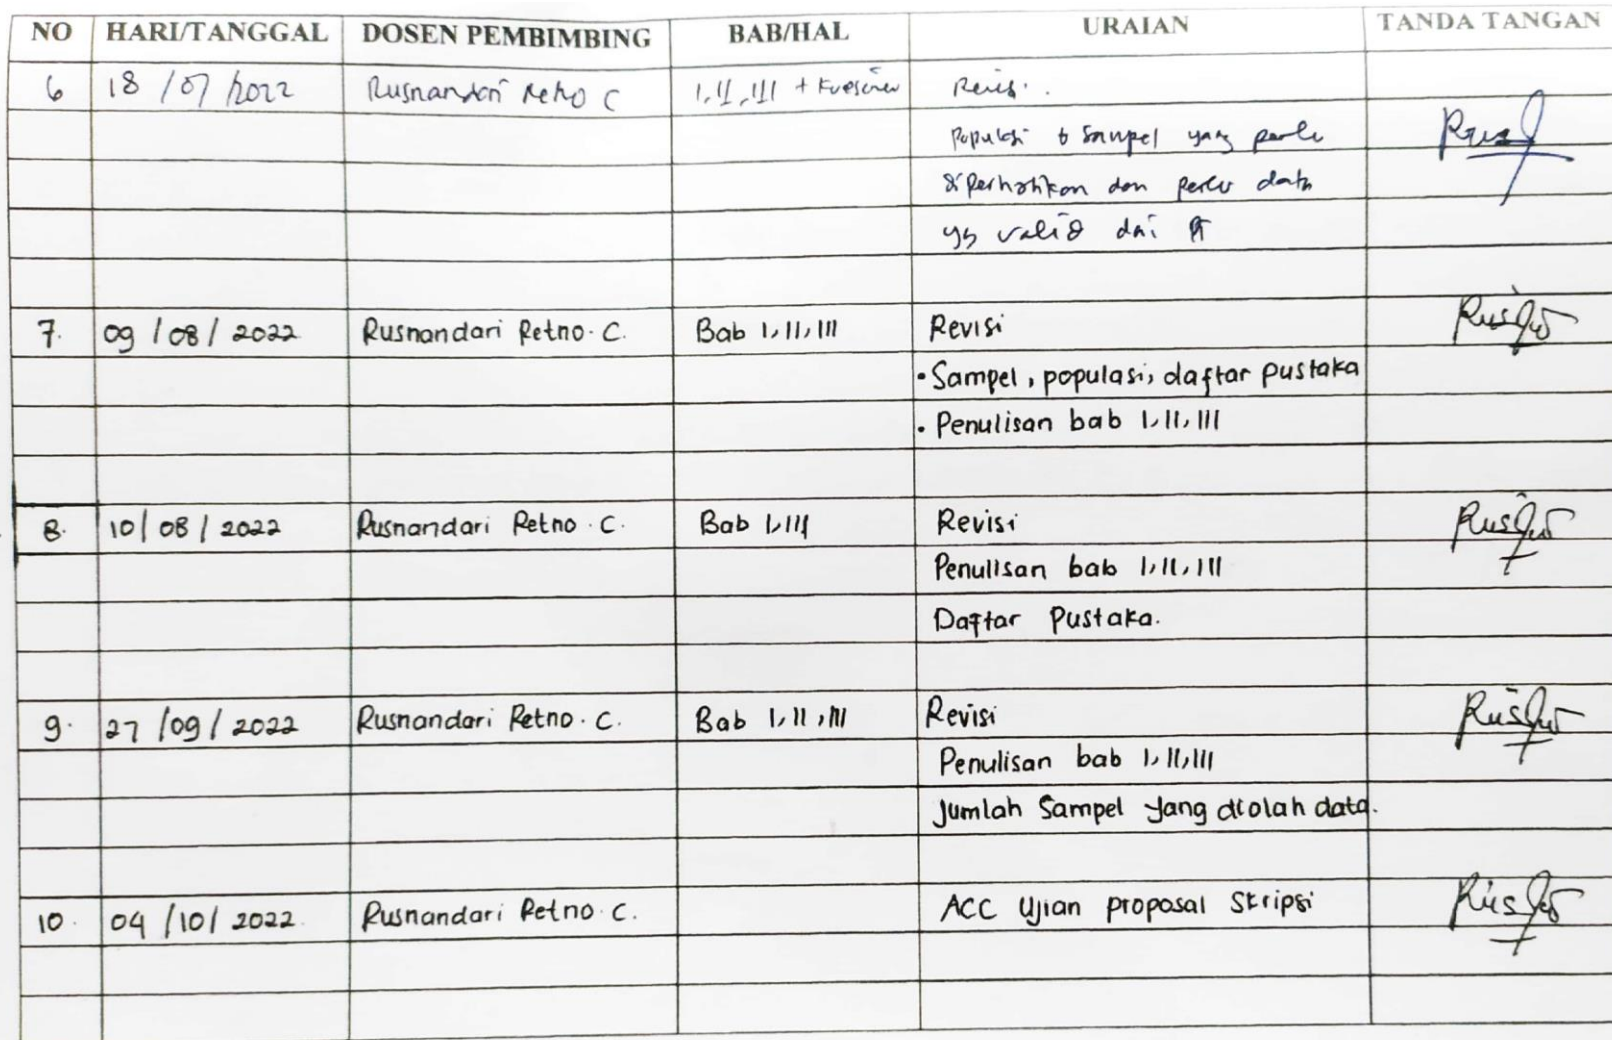 NO HARI/TANGGAL DOSEN PEMBIMBING BAB/HAL URAIAN TANDA TANGAN
6 18 /07 /2022 Rusnandari Retno C I, II, III + Kuesioner Revisi.
Populasi & Sampel yang perlu
diperhatikan dan perlu data
yg valid dari PT
7. 09 / 08 / 2022 Rusnandari Retno. C. Bab I, II, III Revisi
• Sampel, populasi, daftar pustaka
• Penulisan bab I, II, III
8. 10 / 08 / 2022 Rusnandari Retno. C. Bab I, III Revisi
Penulisan bab I, II, III
Daftar Pustaka.
9. 27 /09 / 2022 Rusnandari Retno. C. Bab I, II, III Revisi
Penulisan bab I, II, III
Jumlah Sampel yang diolah data.
10. 04 /10/ 2022. Rusnandari Retno. C. ACC Ujian proposal Skripsi